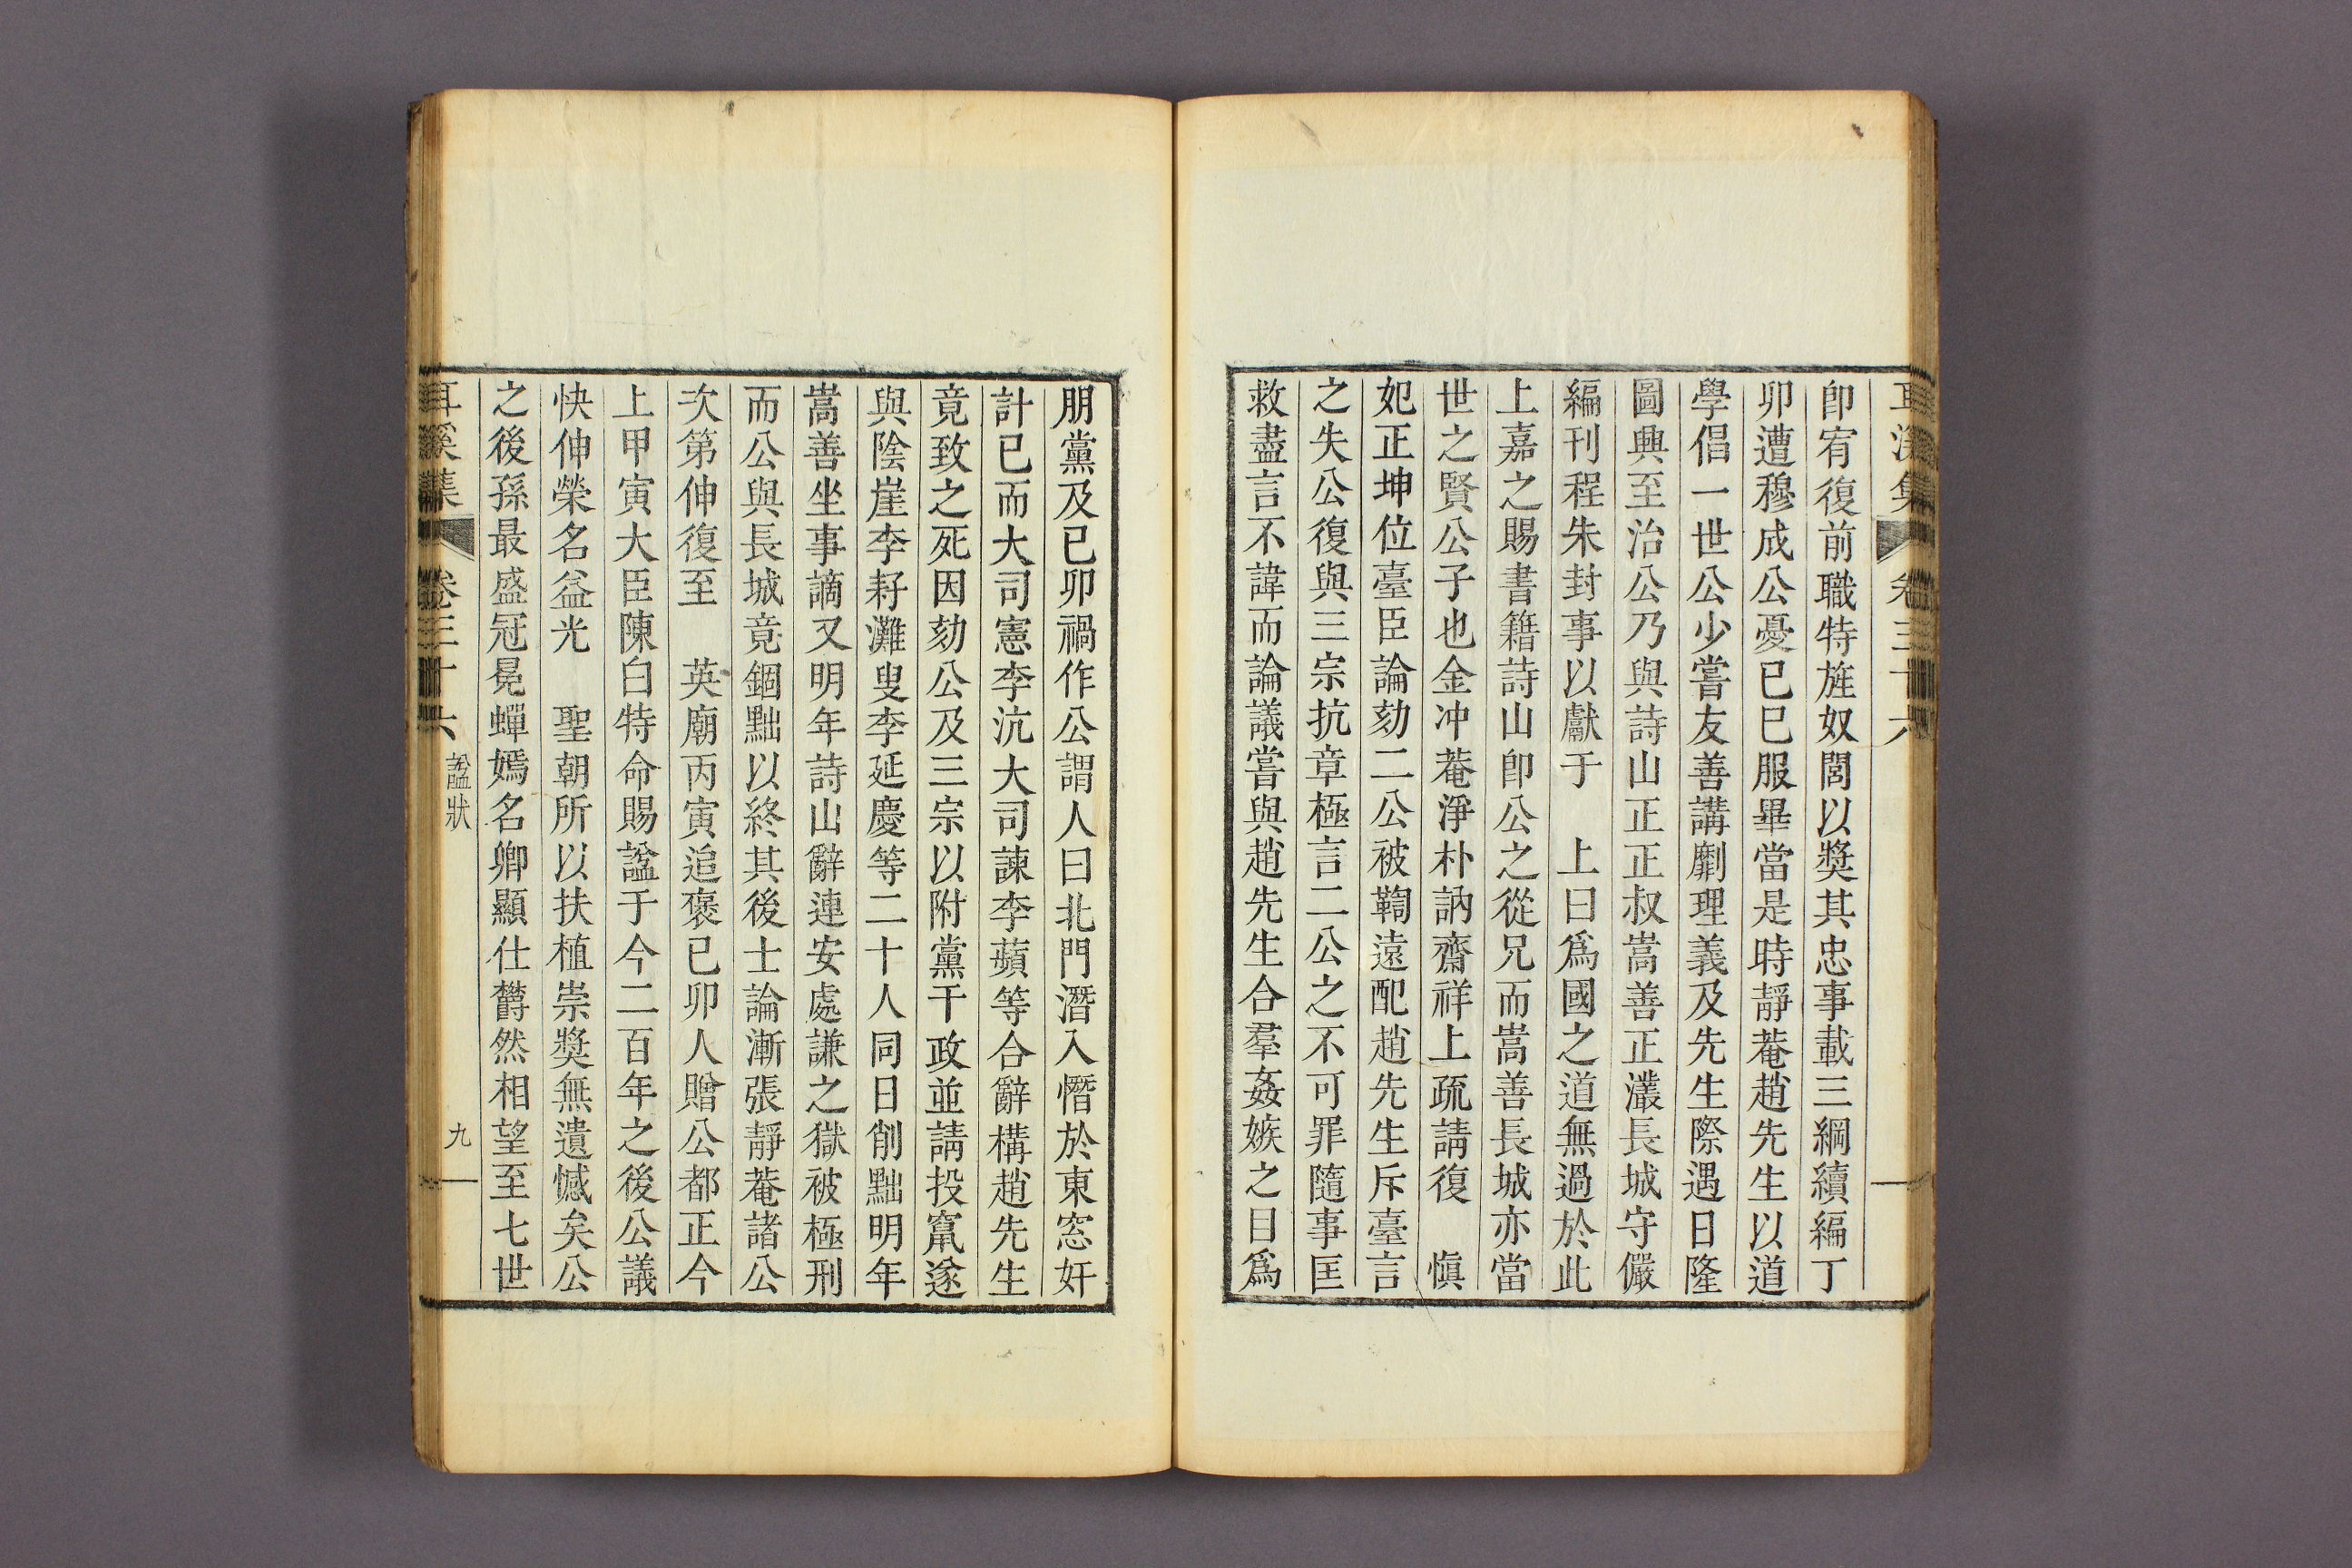 耳溪集 卷三十六
卽宥復前職特旌奴閭以獎其忠事載三綱續編丁
卯遭穆成公憂己巳服畢當是時靜菴趙先生以道
學倡一世公少嘗友善講劘理義及先生際遇日隆
圖興至治公乃與詩山正正叔嵩善正灇長城守儼
編刊程朱封事以獻于 上曰爲國之道無過於此
上嘉之賜書籍詩山卽公之從兄而嵩善長城亦當
世之賢公子也金冲菴淨朴訥齋祥上疏請復 愼
妃正坤位臺臣論劾二公被鞫遠配趙先生斥臺言
之失公復與三宗抗章極言二公之不可罪隨事匡
救盡言不諱而論議嘗與趙先生合羣姦嫉之日爲
朋黨及己卯禍作公謂人曰北門潛入憯於東窓奸
計已而大司憲李沆大司諫李蘋等合辭構趙先生
竟致之死因劾公及三宗以附黨干政並請投竄遂
與陰崖李耔灘叟李延慶等二十人同日削黜明年
嵩善坐事謫又明年詩山辭連安處謙之獄被極刑
而公與長城竟錮黜以終其後士論漸張靜菴諸公
次第伸復至 英廟丙寅追褒己卯人贈公都正今
上甲寅大臣陳白特命賜諡于今二百年之後公議
快伸榮名益光 聖朝所以扶植崇獎無遺憾矣公
之後孫最盛冠冕蟬嫣名卿顯仕欝然相望至七世
耳溪集 卷三十六 諡狀 九